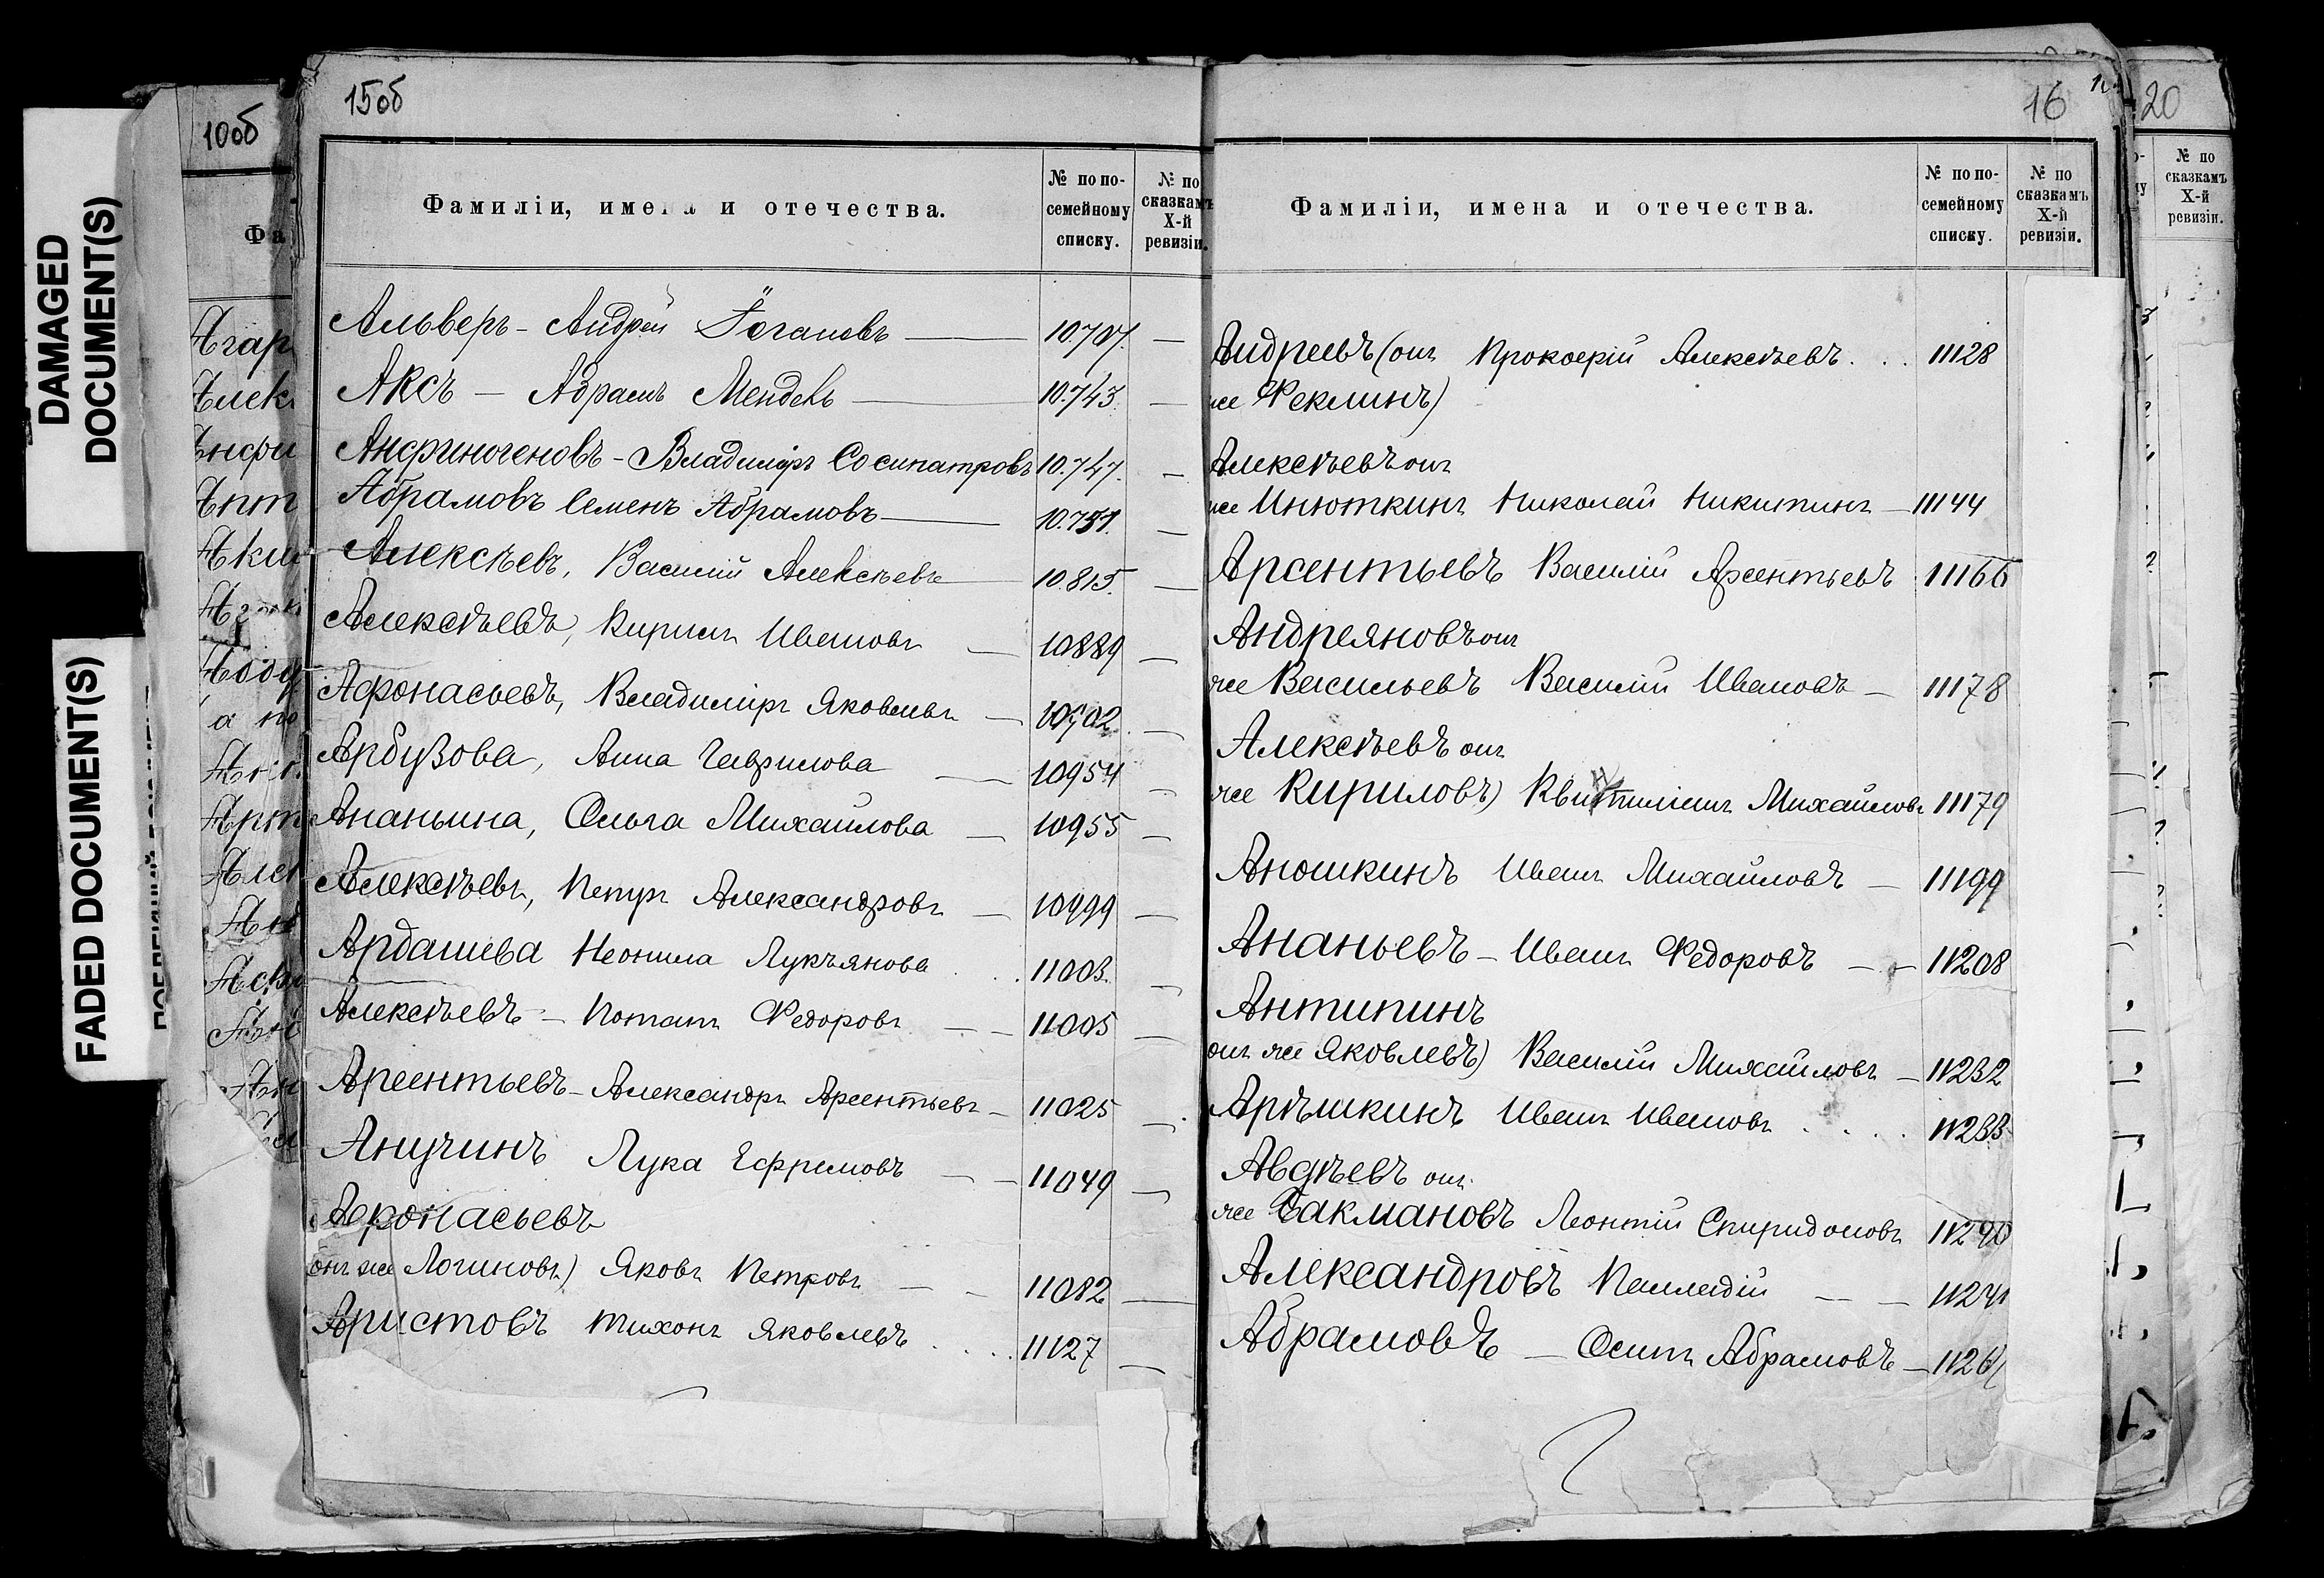 DAMAGED
DOCUMENT(S)
FADED DOCUMENT(S)
10об
Фа
Агар
Алек
Анфи
Апт
15об
Фамиліи, имена и отечества.
№ по по-
семейному
списку.
№ по
сказкамъ
Х-й
ревизіи.
Альверъ - Андрей Іогановъ — 10.707.
Аксъ — Абрамъ Мендель — 10.743.
Анфиногеновъ - Владиміръ Сосипатровъ 10.747.
Абрамовъ Семенъ Абрамовъ — 10.751.
Алексѣевъ, Василій Алексѣевъ — 10.815.
Алексѣевъ, Кирилъ Ивановъ — 10889
Афонасьевъ, Владиміръ Яковлевъ — 10902
Арбузова, Анна Гаврилова — 10954
Ананьина, Ольга Михайлова — 10955
Алексѣевъ, Петръ Александровъ — 10999
Ардашева Неонила Лукъянова . . 11003.
Алексѣевъ — Потапъ Федоровъ — — 11005
Арсентьевъ - Александръ Арсентьевъ — 11025
Анучинъ Лука Ефремовъ — — 11049
Афонасьевъ
онъ же Логиновъ) Яковъ Петровъ — — 11082
Аристовъ Тихонъ Яковлевъ . . . . 11127
16
Фамиліи, имена и отечества.
№ по по-
семейному
списку.
№ по
сказкамъ
Х-й
ревизіи.
Андреевъ (онъ Прокофій Алексѣевъ. . . 11128
же Феклинъ)
Алексѣевъ онъ
же Инюткинъ Николай Никитинъ — 11144
Арсентьевъ Василій Арсентьевъ 11166
Андреяновъ онъ
же Васильевъ Василій Ивановъ — 11178
Алексѣевъ онъ
же Кириловъ) Михайловъ 11179
Аношкинъ Иванъ Михайловъ — 11199
Ананьевъ — Иванъ Федоровъ — — 11208
Антипинъ
онъ же Яковлевъ) Василій Михайловъ — 11232
Арѣшкинъ Иванъ Ивановъ . . . . 11233
Авдѣевъ онъ
же Бакмановъ Леонтій Спиридоновъ 11240
Александровъ Палладій — — 11241
Абрамовъ — Осипъ Абрамовъ — 1126
20
№ по
сказкамъ
Х-й
ревизіи.